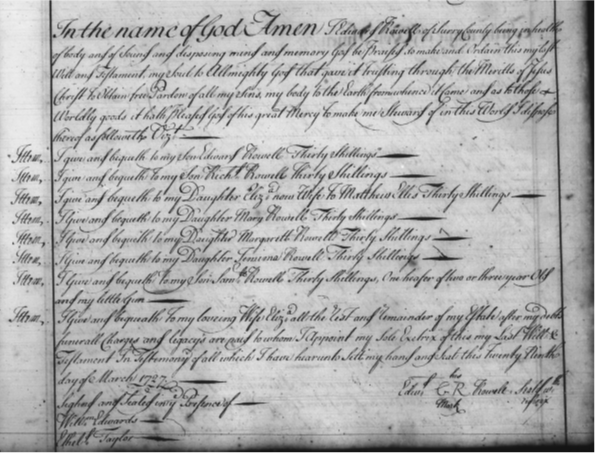 In the name of God Amen I Edward Rowell of Surry County being in health
of body and of Sound and disposing mind and memory God be Praised do make and Ordain this my last
Will and Testament, my Soul to Allmighty God that gave it trusting through the Merrills of Jesus
Christ to Obtain free Pardon of all my Sins, my body to the Earth from whence it Came and as to those
Worldly goods it hath Pleased God of his great Mercy to make me Steward of in this World I dispose
thereof as followeth Vizt.
Ittem, I give and bequeth to my Son Edward Rowell Thirty Shillings
Ittem, I give and bequeth to my Son Richd. Rowell Thirty Shillings
Ittem, I give and bequeth to my Daughter Eliza. now Wife to Matthew Ellis Thirty Shillings
Ittem, I Give and bequeth to my Daughter Mary Rowell Thirty Shillings
Ittem, I Give and bequeth to my Daughter Margarett Rowell Thirty Shillings
Ittem, I Give and bequeth to my Daughter Rowell Thirty Shillings
Ittem, I Give and bequeth to my Son Saml. Rowell Thirty Shillings, One heafer of two or three year Old
and my little Gun
Ittem, I Give and bequeath to my loveing Wife Eliza. all the Rest and Remainder of my Estate after my debts
funerall Charges and Legacys are paid to whom I Appoint my Sole Exectrx of this my Last Will &
Testament In Testimony of all which I have hereunto Sett my hand and Seal this Twenty Ninth
day of March 1727
Signed and Sealed in ye Presence of
Edwd. E R Rowell Seal
his
Mark
Willm. Edwards
Ethelrd. Taylor